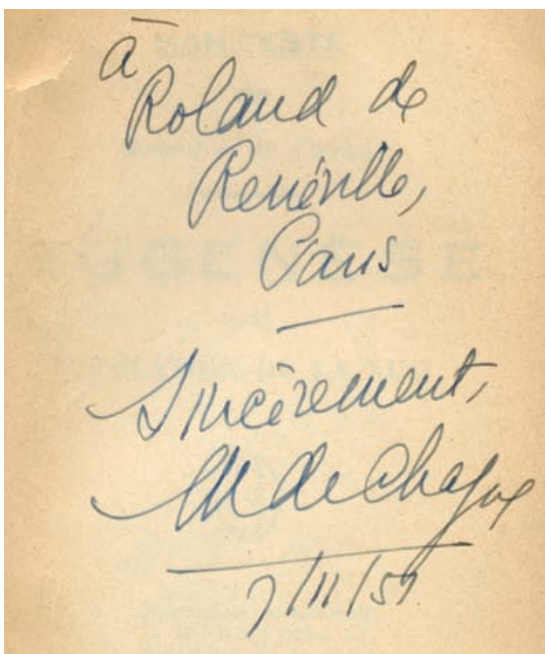 à
Roland de
Renéville,
Paris
Sincèrement,
M de Chazal
7/11/51